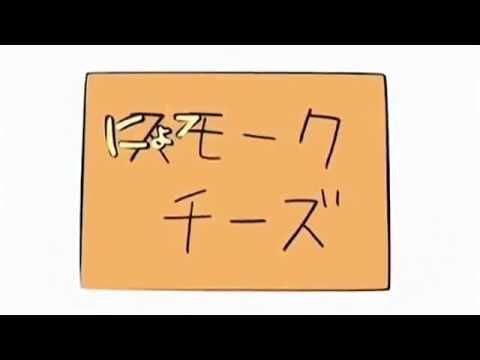 にょ
スモーク
チーズ